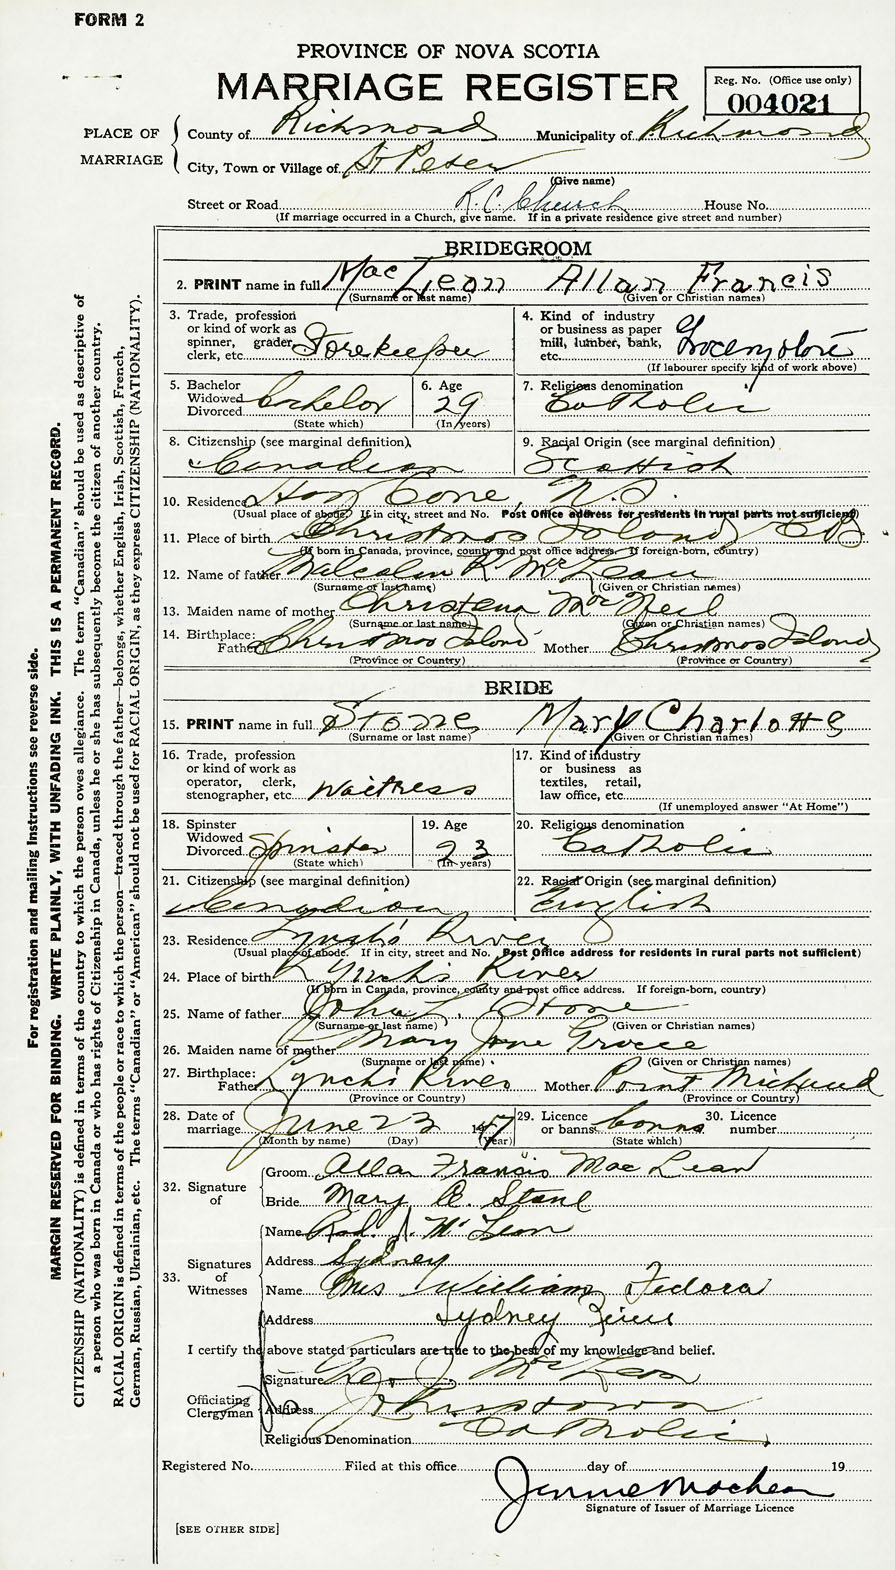 FORM 2
PROVINCE OF NOVA SCOTIA
MARRIAGE REGISTER
Reg. No. (Office use only)
004021
PLACE OF MARRIAGE
County of Richmond Municipality of Richmond
City, Town or Village of St Peter
(Give name)
Street or Road R.C. Church House No.
(If marriage occurred in a Church, give name. If in a private residence give street and number)
BRIDEGROOM
2. PRINT name in full MacLean Allan Francis
(Surname or last name) (Given or Christian names)
3. Trade, profession or kind of work as spinner, grader, clerk, etc. Storekeeper
4. Kind of industry or business as paper mill, lumber, bank, etc. Grocery store
(If labourer specify kind of work above)
5. Bachelor Widowed Divorced Bachelor
(State which)
6. Age 29
(In years)
7. Religious denomination Catholic
8. Citizenship (see marginal definition) Canadian
9. Racial Origin (see marginal definition) Scottish
10. Residence Hay Cove, N.S.
(Usual place of abode. If in city, street and No. Post Office address for residents in rural parts not sufficient)
11. Place of birth Christmas Island CB
(If born in Canada, province, county and post office address. If foreign-born, country)
12. Name of father Malcolm R. McLean
(Surname or last name) (Given or Christian names)
13. Maiden name of mother Christena MacNeil
(Surname or last name) (Given or Christian names)
14. Birthplace: Father Christmas Island Mother Christmas Island
(Province or Country) (Province or Country)
BRIDE
15. PRINT name in full Stone Mary Charlotte
(Surname or last name) (Given or Christian names)
16. Trade, profession or kind of work as operator, clerk, stenographer, etc. Waitress
17. Kind of industry or business as textiles, retail, law office, etc.
(If unemployed answer "At Home")
18. Spinster Widowed Divorced Spinster
(State which)
19. Age 23
(In years)
20. Religious denomination Catholic
21. Citizenship (see marginal definition) Canadian
22. Racial Origin (see marginal definition) English
23. Residence Lynch's River
(Usual place of abode. If in city, street and No. Post Office address for residents in rural parts not sufficient)
24. Place of birth Lynch's River
(If born in Canada, province, county and post office address. If foreign-born, country)
25. Name of father John L. Stone
(Surname or last name) (Given or Christian names)
26. Maiden name of mother Mary Jane
(Surname or last name) (Given or Christian names)
27. Birthplace: Father Lynch's River Mother Point Michaud
(Province or Country) (Province or Country)
28. Date of marriage June 23 1957
(Month by name) (Day) (Year)
29. Licence or banns Banns
(State which)
30. Licence number
32. Signature of
Groom Allan Francis MacLean
Bride Mary C. Stone
33. Signatures of Witnesses
Name Rod. J. McLean
Address Sydney
Name Mrs William Fedora
Address Sydney
I certify the above stated particulars are true to the best of my knowledge and belief.
Officiating Clergyman
Signature J. McLean
Address Johnstown
Religious Denomination Catholic
Registered No. Filed at this office day of 19
Jennie MacLean
Signature of Issuer of Marriage Licence
[SEE OTHER SIDE]
For registration and mailing instructions see reverse side.
MARGIN RESERVED FOR BINDING. WRITE PLAINLY, WITH UNFADING INK. THIS IS A PERMANENT RECORD.
CITIZENSHIP (NATIONALITY) is defined in terms of the country to which the person owes allegiance. The term "Canadian" should be used as descriptive of
a person who was born in Canada or who has rights of Citizenship in Canada, unless he or she has subsequently become the citizen of another country.
RACIAL ORIGIN is defined in terms of the people or race to which the person—traced through the father—belongs, whether English, Irish, Scottish, French,
German, Russian, Ukrainian, etc. The terms "Canadian" or "American" should not be used for RACIAL ORIGIN, as they express CITIZENSHIP (NATIONALITY).